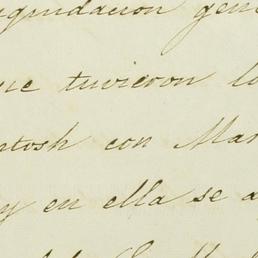 iquidacion gen
ue tuvieron lo
ntosh con Mar
y en ella se a